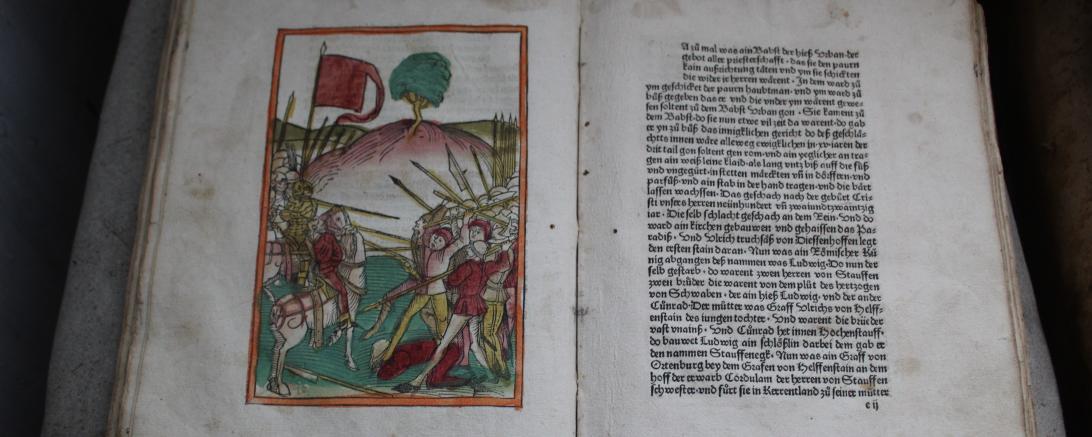 A zů mal was ain Babst der hieß Vrban·der
gebot aller priesterschafft·das sie den paurn
kain außrichtung täten vnd ym sie schickten
die wider ir herren wärent·In dem ward zů
ym geschicket der paurn haubtman·vnd ym ward zů
bůß gegeben das er vnd die vnder ym wärent gewe-
sen soltent zů dem Babst Vrban gon·Sie kament zů
dem Babst·do sie nun etwe vil zeit da warent·do gab
er yn zů bůß das innigklichen gericht do deß geschlä-
chtts innen wäre alleweg ewigklichen in·xv·iaren der
drit tail gon soltent gen rom·vnd ain yeglicher an tra-
gen ain weiß leine klaid·als lang vntz biß auff die füß
vnd vngegürt·in stetten märckten vñ in dörffern·vnd
parfůß·vnd ain stab in der hand tragen·vnd die bärt
lassen wachssen·Das geschach nach der gebůrt Cri-
sti vnsers herren neünhundert vñ zwaintzwaintzig
iar·Die selb schlacht geschach an dem Rein·Vnd do
ward ain kirchen gebauwen vnd gehaissen das Pa-
radiß·Vnd Vlrich truchsäß von Diessenhoffen legt
den ersten stain daran·Nun was ain Römischer Kü
nig abgangen deß nammen was Ludwig·Do nun der
selb gestarb·do warent zwen herren von Stauffen
zwen brüder die warent von dem plüt des hertzogen
von Schwaben·der ain hieß Ludwig·vnd der ander
Cůnrad·Der můtter was Graff Vlrichs von Helff-
enstain des iungen tochter·Vnd warent die brüeder
vast vnainß·Vnd Cůnrad het innen Hochenstauff·
do bauwet Ludwig ain schlößlin darbei dem gab er
den nammen Stauffenegk·Nun was ain Graff von
Ortenburg bey dem Grafen von Helffenstain an dem
hoff der erwarb Cordulam der herren von Stauffen
schwester·vnd fůrt sie in Kerrentland zů seiner můtter
e ij